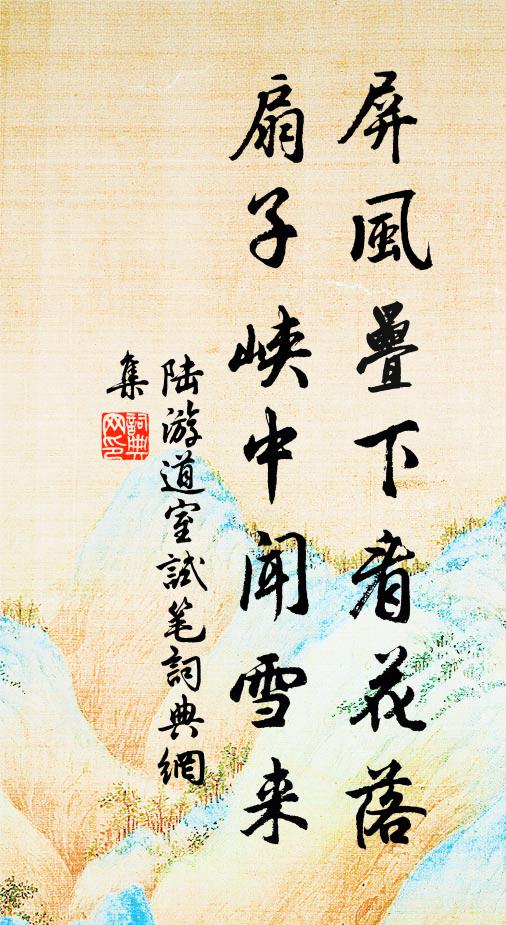 屏風疊下看花落
扇子峽中聞雪来
陆游道室試笔詞典網
集
詞典网印